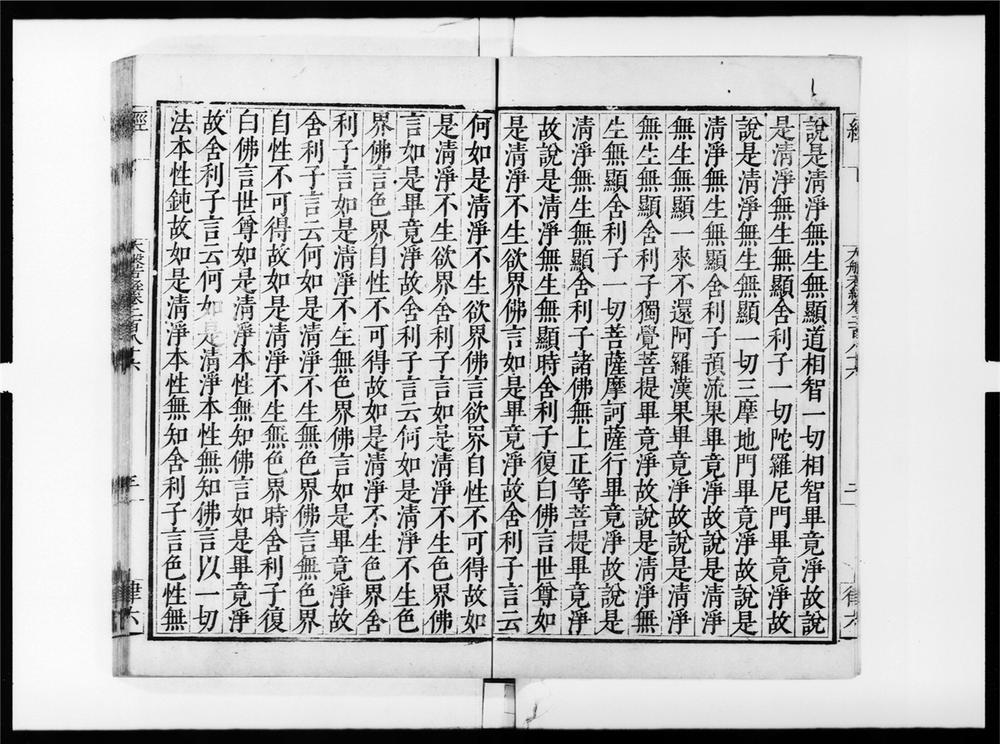 說是清淨無生無顯道相智一切相智畢竟淨故說
是清淨無生無顯舍利子一切陀羅尼門畢竟淨故
說是清淨無生無顯一切三摩地門畢竟淨故說是
清淨無生無顯舍利子預流果畢竟淨故說是清淨
無生無顯一來不還阿羅漢果畢竟淨故說是清淨
無生無顯舍利子獨覺菩提畢竟淨故說是清淨無
生無顯舍利子一切菩薩摩訶薩行畢竟淨故說是
清淨無生無顯舍利子諸佛無上正等菩提畢竟淨
故說是清淨無生無顯時舍利子復白佛言世尊如
是清淨不生欲界佛言如是畢竟淨故舍利子言云
何如是清淨不生欲界佛言欲界自性不可得故如
是清淨不生欲界舍利子言如是清淨不生色界佛
言如是畢竟淨故舍利子言云何如是清淨不生色
界佛言色界自性不可得故如是清淨不生色界舍
利子言如是清淨不生無色界佛言如是畢竟淨故
舍利子言云何如是清淨不生無色界佛言無色界
自性不可得故如是清淨不生無色界時舍利子復
白佛言世尊如是清淨本性無知佛言如是畢竟淨
故舍利子言云何如是清淨本性無知佛言以一切
法本性鈍故如是清淨本性無知舍利子言色性無
經
律六